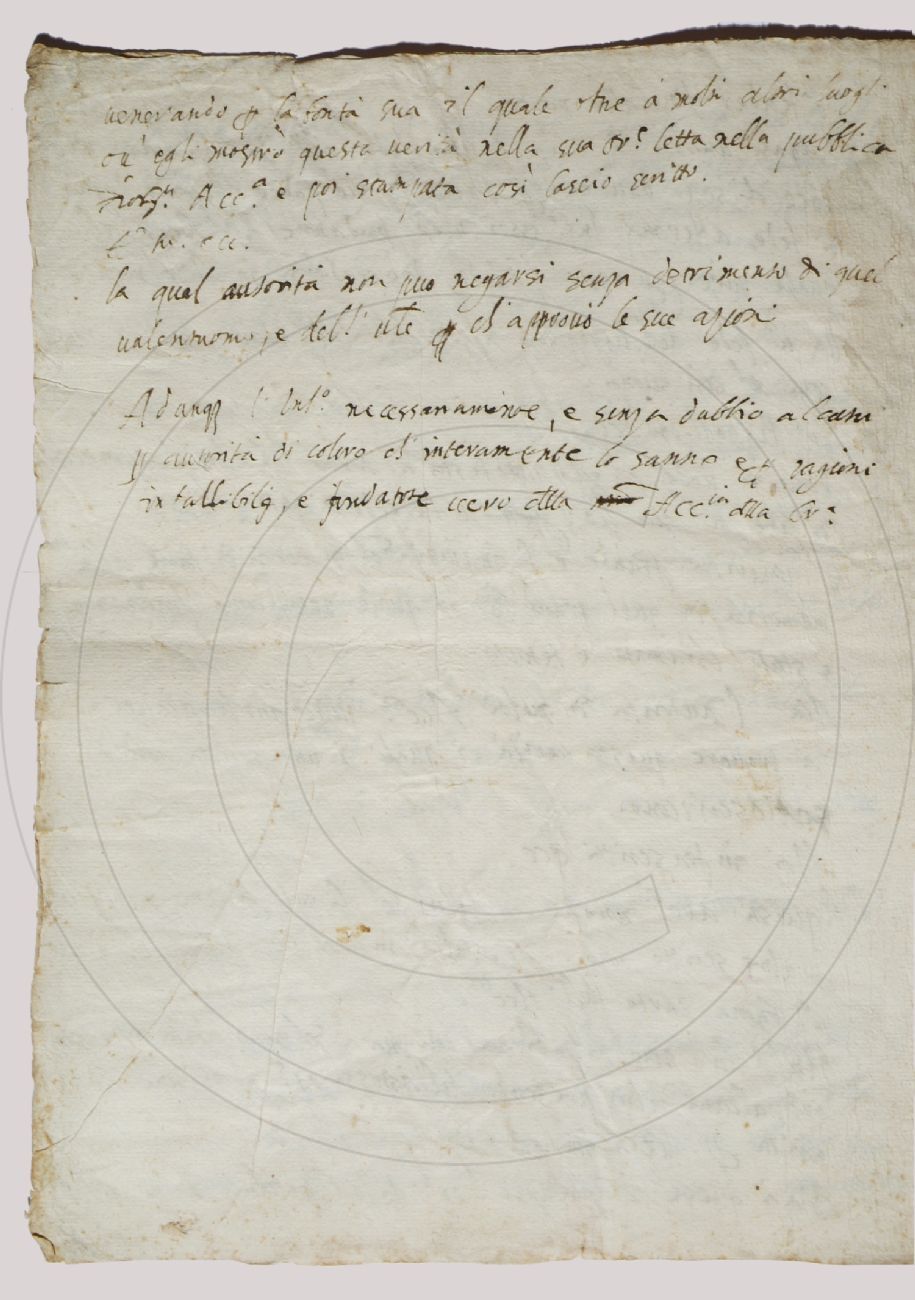 venerando ꝑ la bontà sua il quale oltre à molti altri luoghi
ov' egli mostrò questa verità nella sua Or.e letta nella pubblica
Acc.a e poi stampata così lasciò scritto.
ecc.
la qual autorità non può negarsi senza detrimento di quel
valentuomo, e dell' ꝑ ch' approvò le sue azioni
Adunqꝫ l' Inf.o necessariamente, e senza dubbio alcuno
ꝑ autorità di coloro ch' interamente lo sanno et ragioni
infallibili, e fondatore vero della Acc.ia della Cr.a